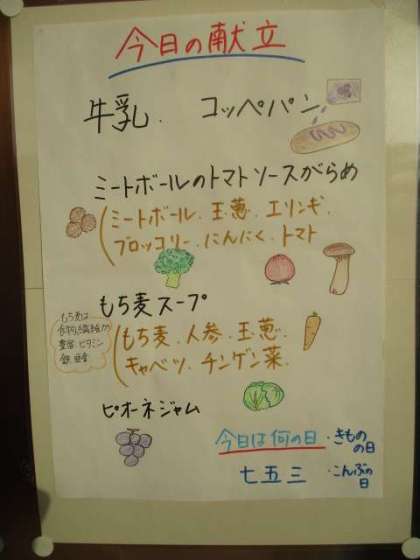 今日の献立
牛乳. コッペパン
ミートボールのトマトソースがらめ
ミートボール.玉葱.エリンギ
ブロッコリー.にんにく.トマト
もち麦スープ
もち麦は
食物繊維が
豊富 ビタミン
鉄
もち麦.人参.玉葱.
キャベツ.チンゲン菜
ピオーネジャム
今日は何の日・きものの日
七五三・こんぶの日